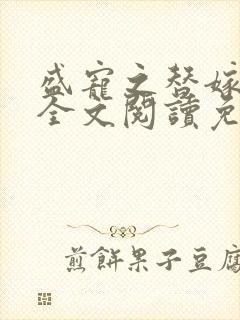 盛寵之替嫁
全文閱讀免
煎餅果子豆腐